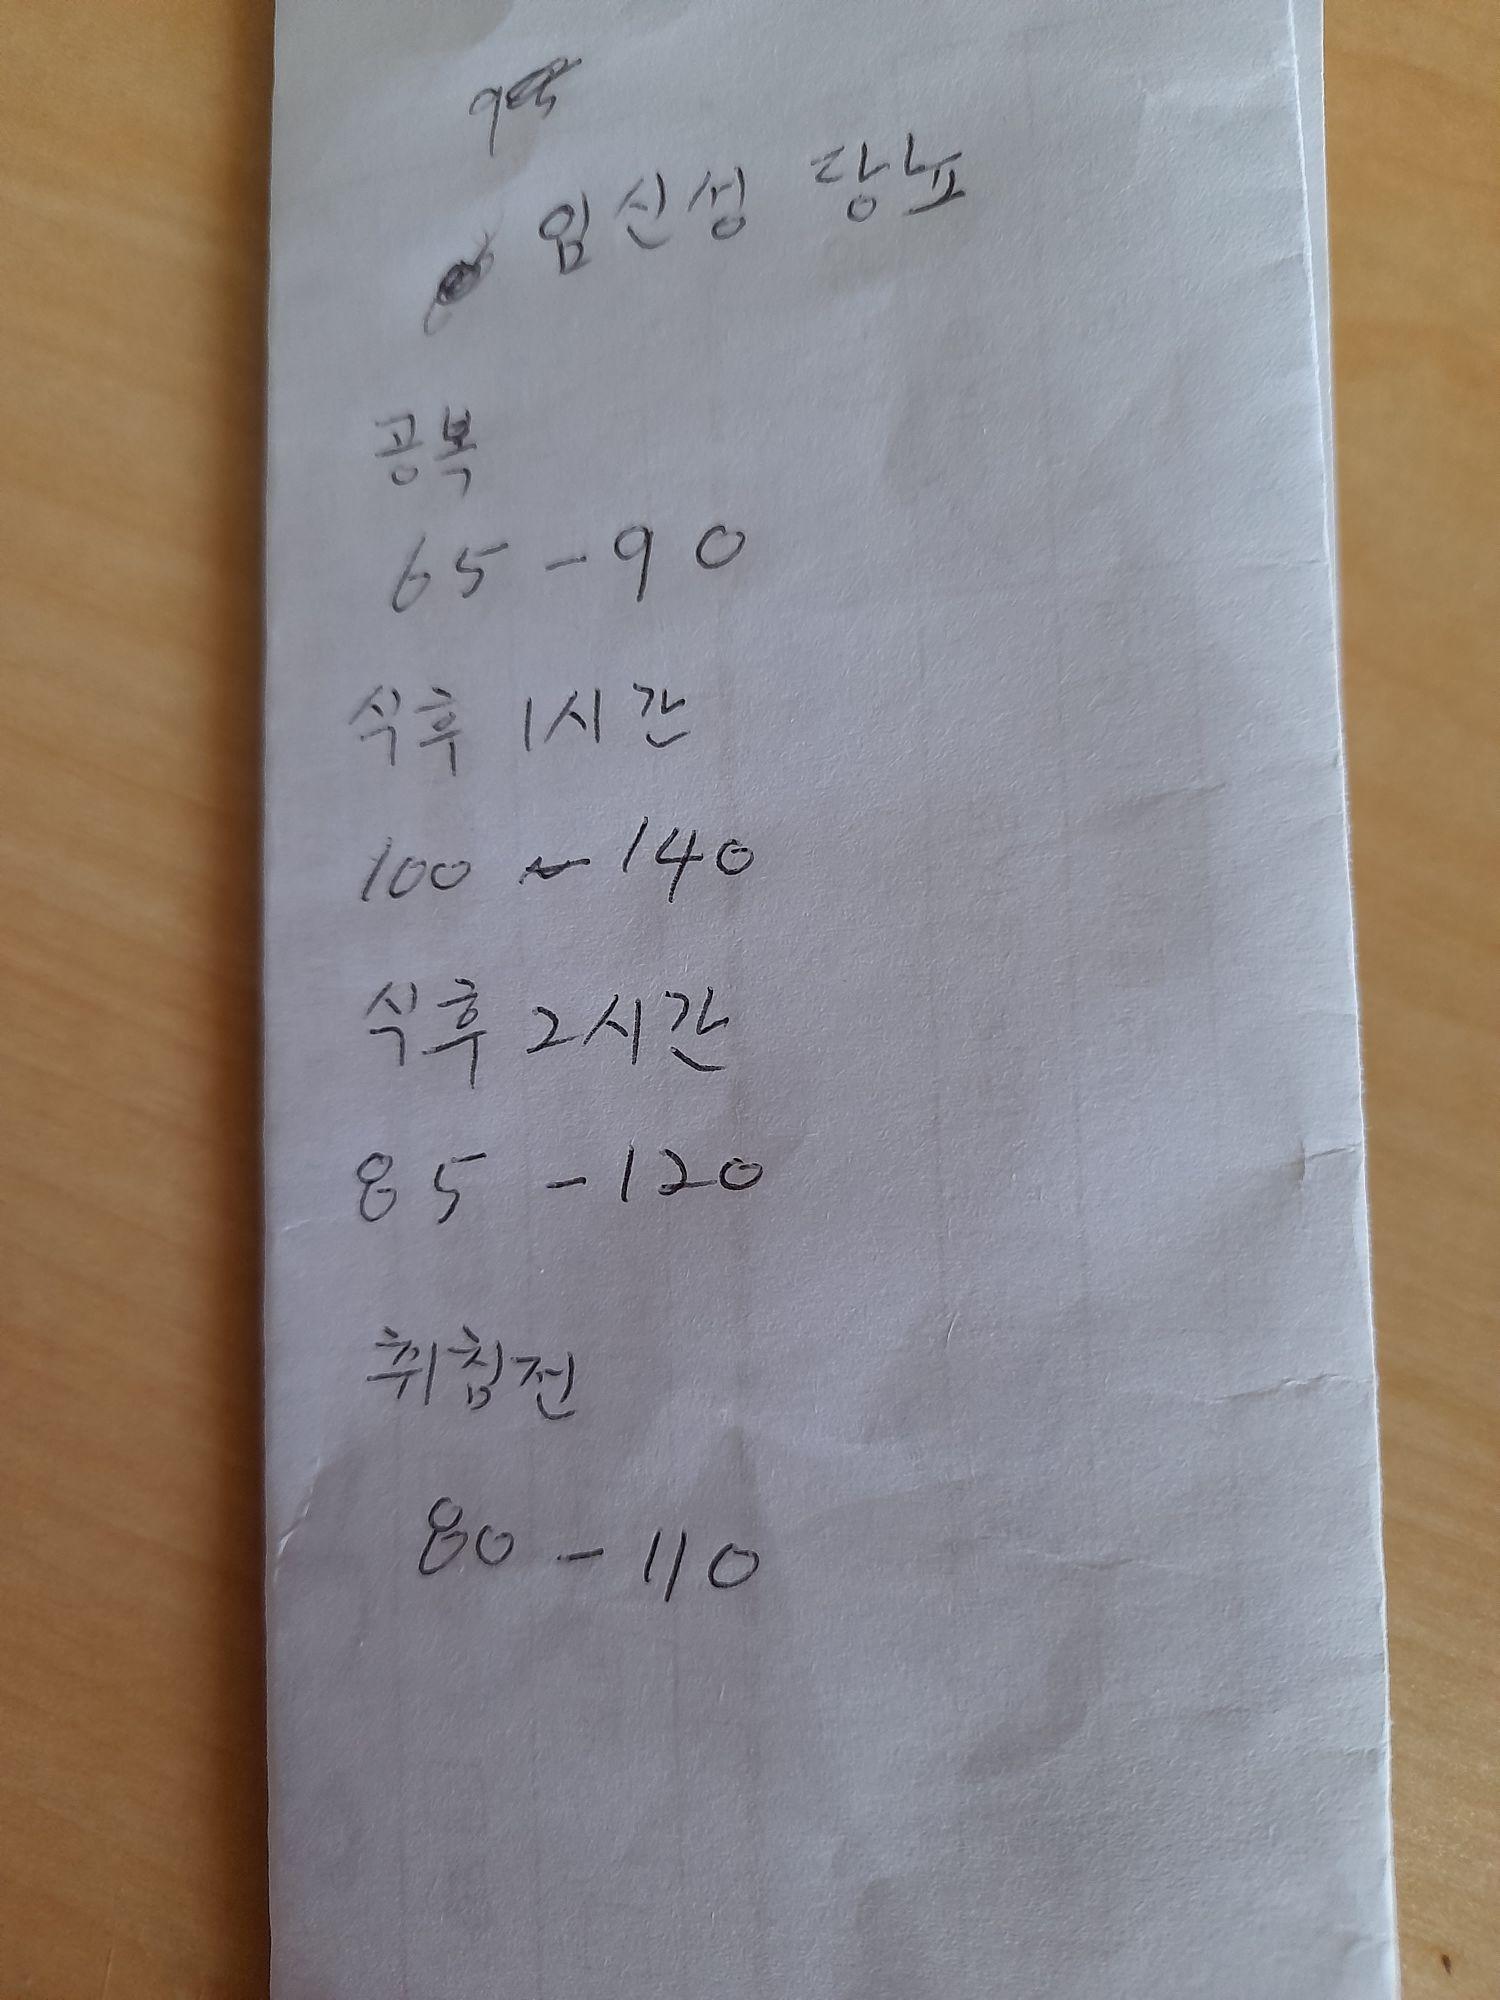 임신성 당뇨
공복
65 - 90
식후 1시간
100 ~ 140
식후 2시간
85 - 120
취침전
80 - 110